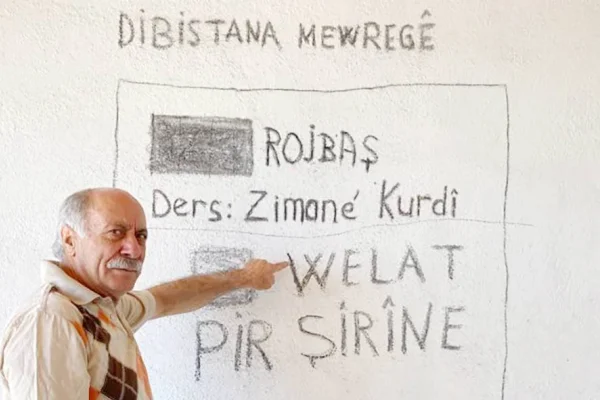 DIBISTANA MEWREGÊ
ROJBAŞ
Ders: Zimané Kurdî
WELAT
PIR ŞIRÎNE